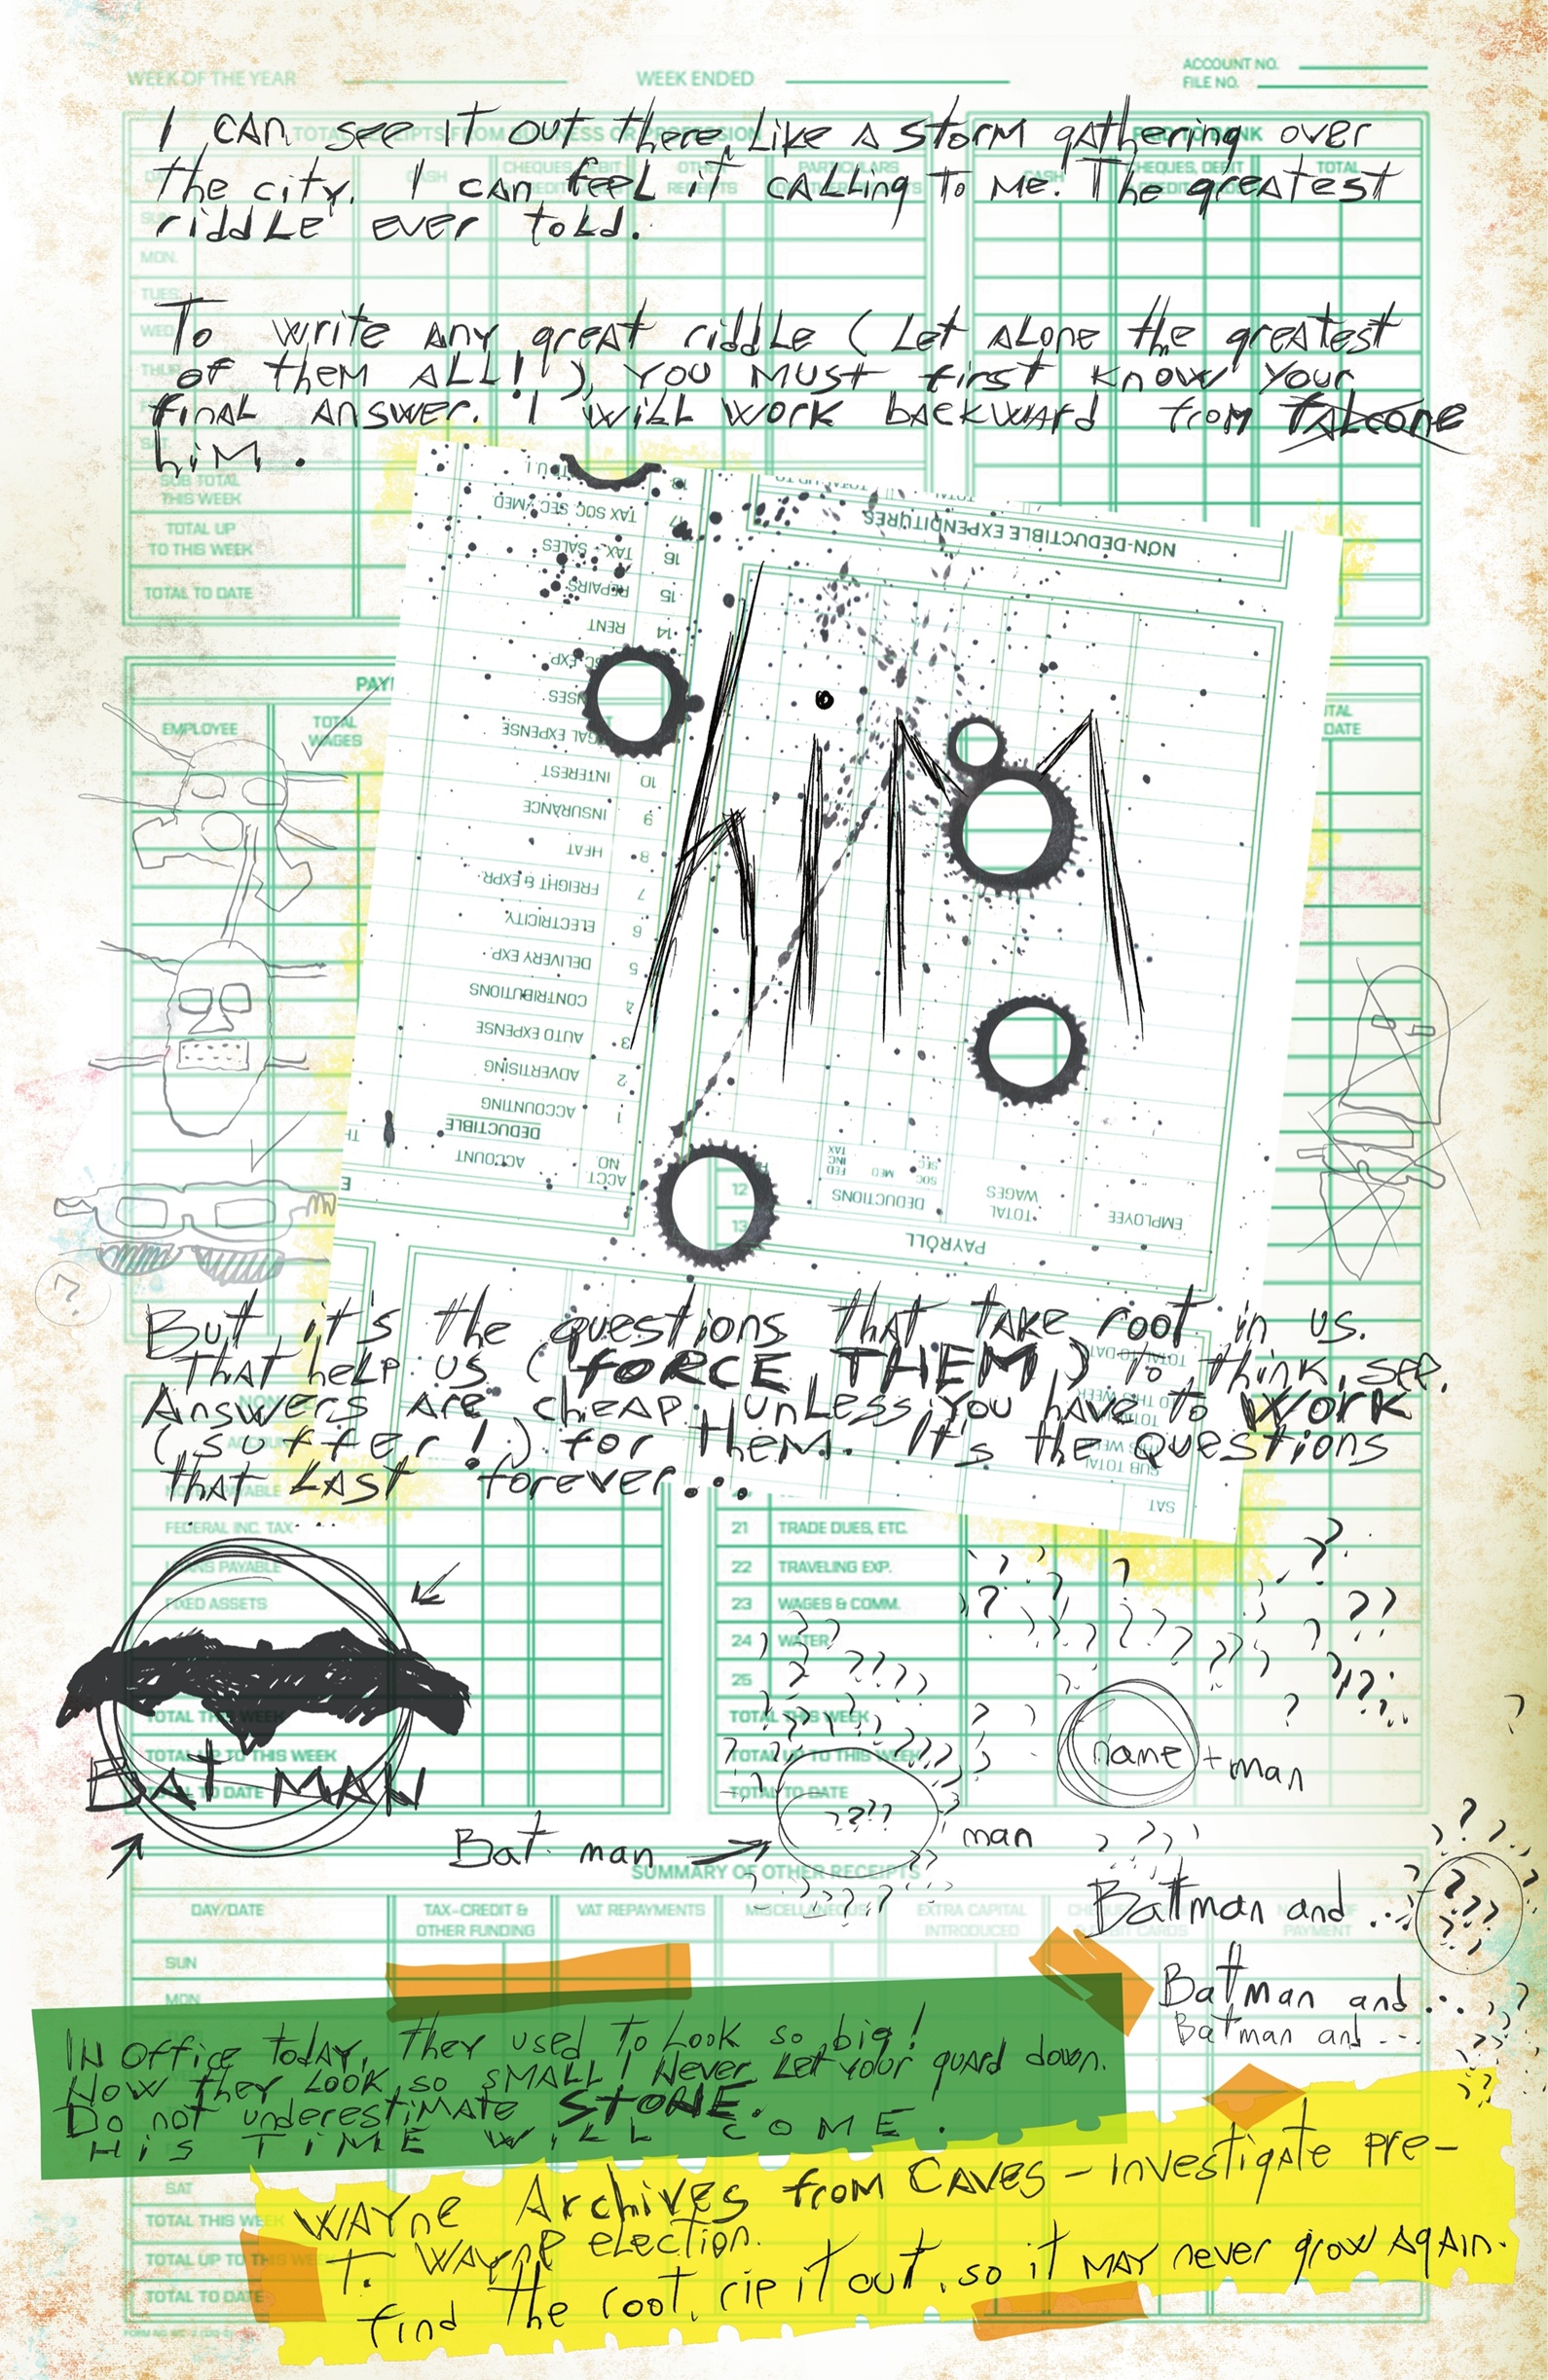 WEEK OF THE YEAR
WEEK ENDED
ACCOUNT NO.
FILE NO.
I CAN see it out there, Like A storm gathering over
the city. I can feel it cALLing to me. The greatest
riddLe ever toLd.
To write any great riddLe (Let ALone the greatest
of them ALL!), you must first know your
finAL Answer. I wiLL work backward from fALcone
him.
MON.
TUES
WED
SUB TOTAL
THIS WEEK
TOTAL UP
TO THIS WEEK
TOTAL TO DATE
NON-DEDUCTIBLE EXPENDITURES
17 TAX SOC SEC / MED
16 TAX - SALES
15 REPAIRS
14 RENT
10 INTEREST
9 INSURANCE
8 HEAT
7 FREIGHT & EXPR.
6 ELECTRICITY
5 DELIVERY EXP.
4 CONTRIBUTIONS
3 AUTO EXPENSE
2 ADVERTISING
1 ACCOUNTING
DEDUCTIBLE
ACCT NO
ACCOUNT
hiM
EMPLOYEE
TOTAL
WAGES
EMPLOYEE
TOTAL
WAGES
DEDUCTIONS
SOC
SEC
MED
FED
INC
TAX
PAYROLL
12
13
?
But it's the questions that take root in us.
That help us (forCE THEM) to think, see.
Answers are cheap, unLess you have to Work
(suffer!) for them. It's the questions
that LAST forever...
SUB TOTAL
SAT
FEDERAL INC. TAX
LOANS PAYABLE
FIXED ASSETS
TOTAL THIS WEEK
TOTAL UP TO THIS WEEK
TOTAL TO DATE
BAT MAN
21 TRADE DUES, ETC.
22 TRAVELING EXP.
23 WAGES & COMM.
24 WATER
25
TOTAL THIS WEEK
TOTAL UP TO THIS WEEK
TOTAL TO DATE
name + man
Bat man
???? man
SUMMARY OF OTHER RECEIPTS
DAY/DATE
TAX-CREDIT &
OTHER FUNDING
VAT REPAYMENTS
MISCELLANEOUS
EXTRA CAPITAL
INTRODUCED
PAYMENT
Batman and ...
Batman and ...
Batman and ...
SUN
MON
IN Office today, they used to Look so big!
Now they Look so SMALL! Never Let your guard down.
Do not underestimate STONE.
HIS TIME WILL COME.
SAT
TOTAL THIS WEEK
TOTAL UP TO THIS WEEK
TOTAL TO DATE
WAYne Archives from CAVES - investigate pre-
T. WAYNE election.
find the root, rip it out, so it MAY never grow AgAin.